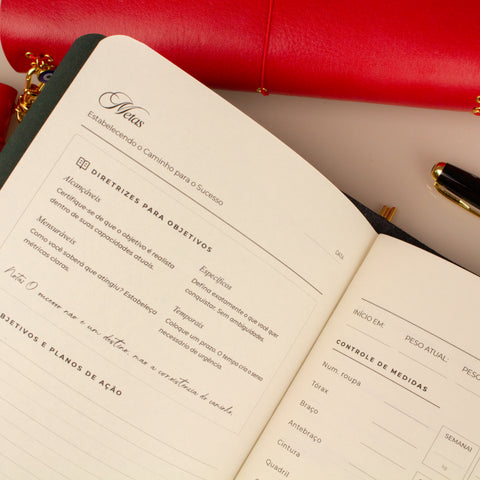 Metas
Estabelecendo o Caminho para o Sucesso
DATA
DIRETRIZES PARA OBJETIVOS
Alcançáveis
Certifique-se de que o objetivo é realista
dentro de suas capacidades atuais.
Específicos
Defina exatamente o que você quer
conquistar. Sem ambiguidades.
Mensuráveis
Como você saberá que atingiu? Estabeleça
métricas claras.
Temporais
Coloque um prazo. O tempo cria o senso
necessário de urgência.
Notas O sucesso não é um destino, mas a consistência do caminho.
OBJETIVOS E PLANOS DE AÇÃO
INÍCIO EM:
PESO ATUAL:
PESO
CONTROLE DE MEDIDAS
Num. roupa
Tórax
Braço
Antebraço
Cintura
Quadril
SEMANA 1
kg